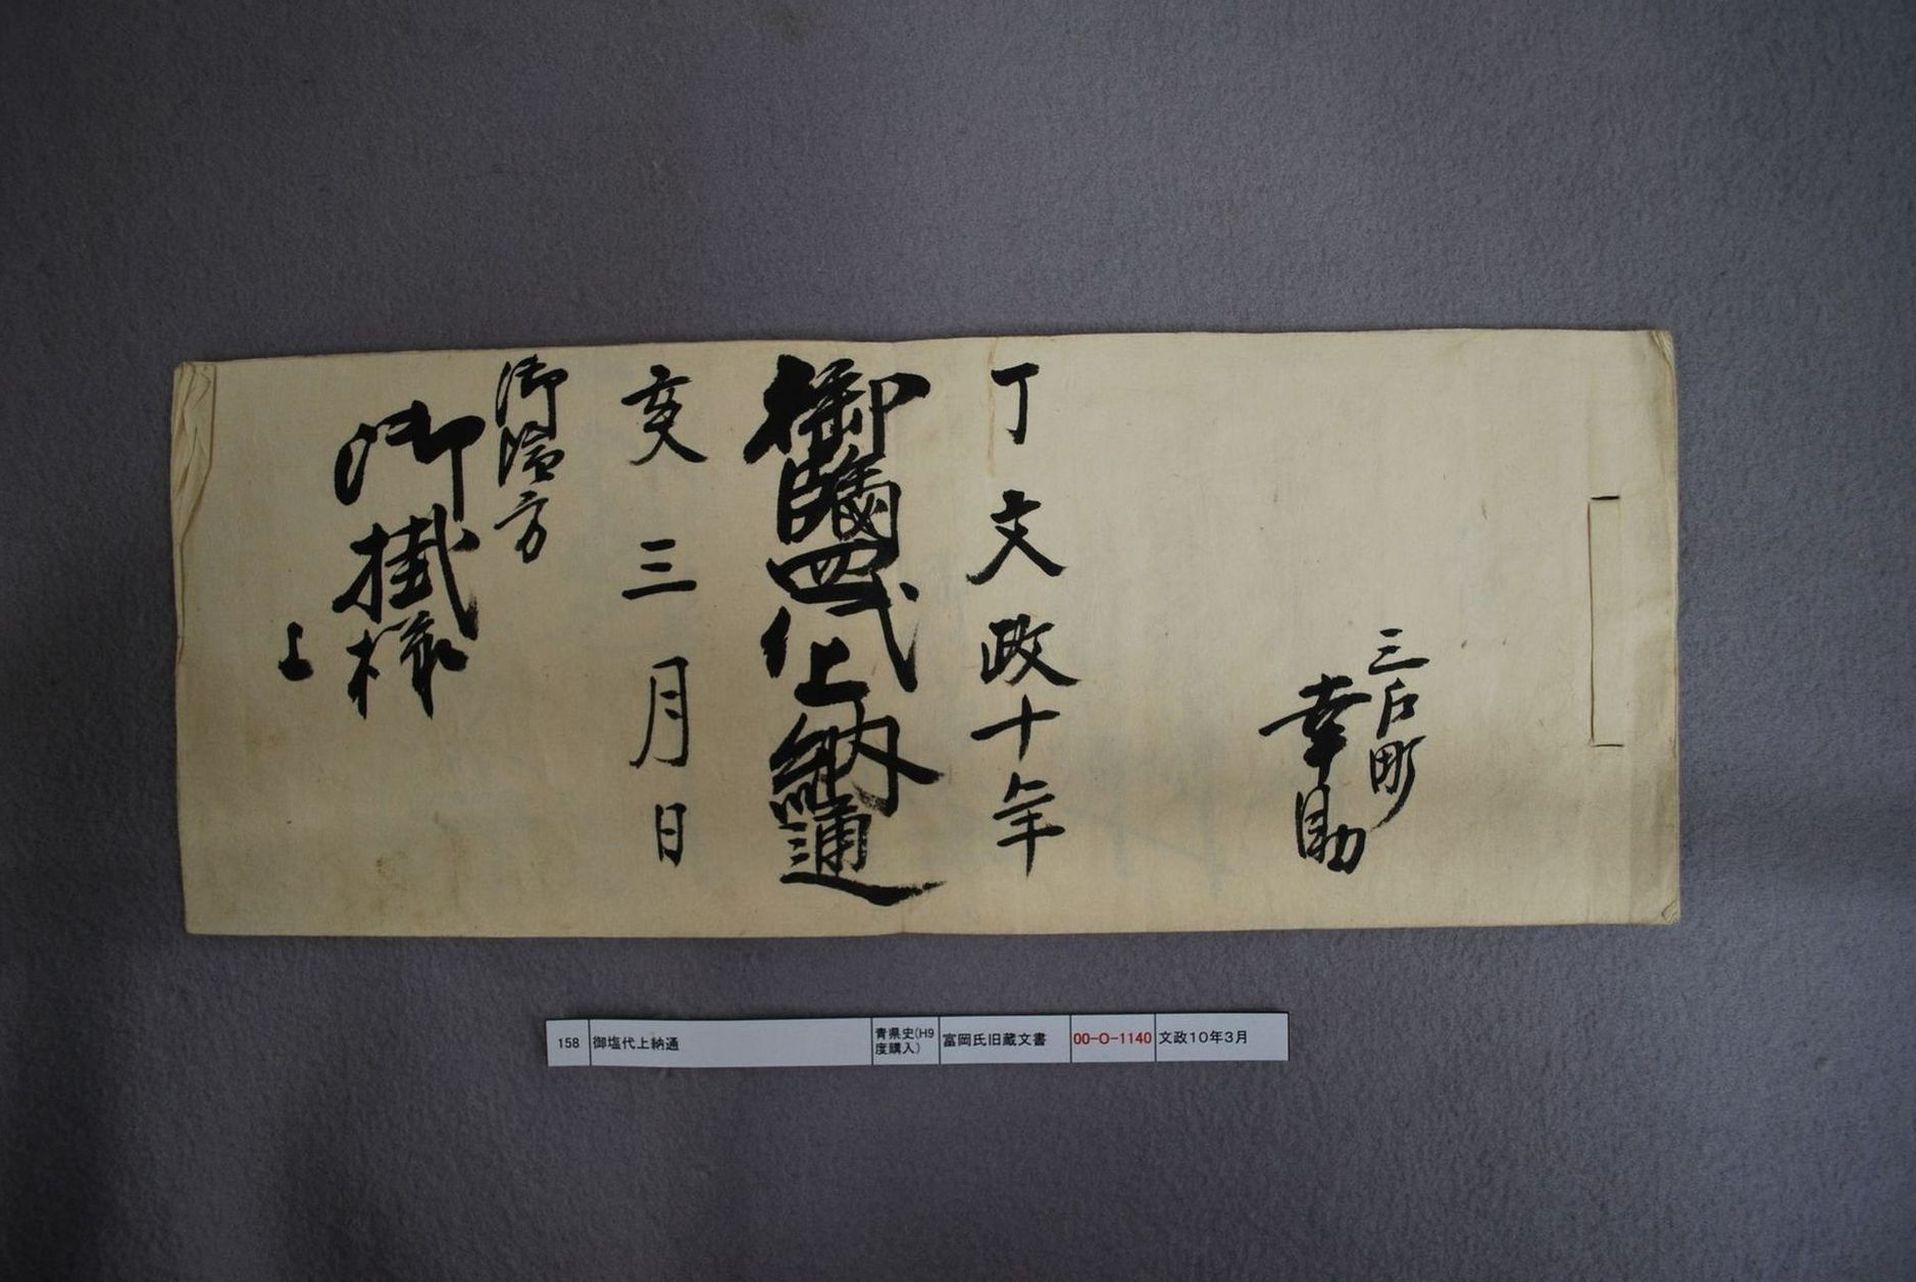 三戸町
幸助
丁文政十年
御鹽代上納通
亥三月日
御塩方
御掛様
上
158 御塩代上納通 青県史(H9度購入) 富岡氏旧蔵文書 00-O-1140 文政10年3月